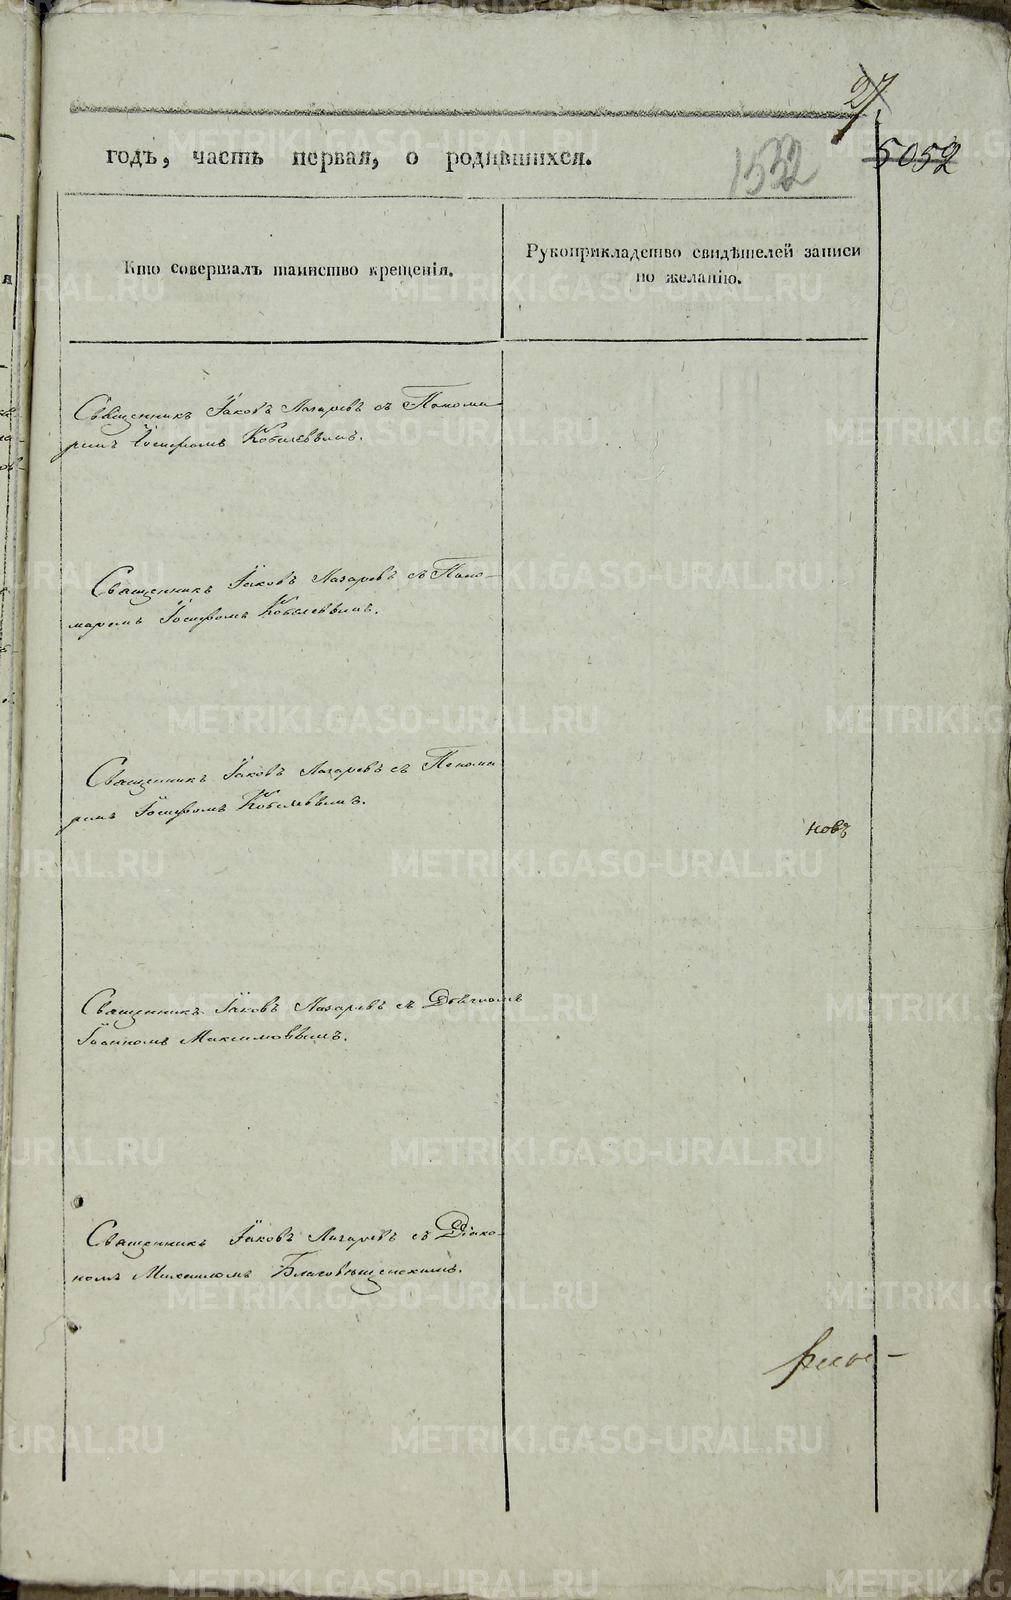 27
годъ, часть первая, о родившихся.
1532
5052
Кто совершалъ таинство крещенія.
Рукоприкладство свидѣтелей записи
по желанію.
Священникъ Іаковъ Лазаревъ съ Понома-
ремъ Іосифомъ Кобелевымъ.
Священникъ Іаковъ Лазаревъ съ Поно-
маремъ Іосифомъ Кобелевымъ.
Священникъ Іаковъ Лазаревъ съ Понома
ремъ Іосифомъ Кобелевымъ.
новъ
Священникъ Іаковъ Лазаревъ съ Дьячкомъ
Іоанномъ Максимовымъ.
Священникъ Іаковъ Лазаревъ съ Діако-
номъ Михаиломъ Благовѣщенскимъ.
METRIKI.GASO-URAL.RU